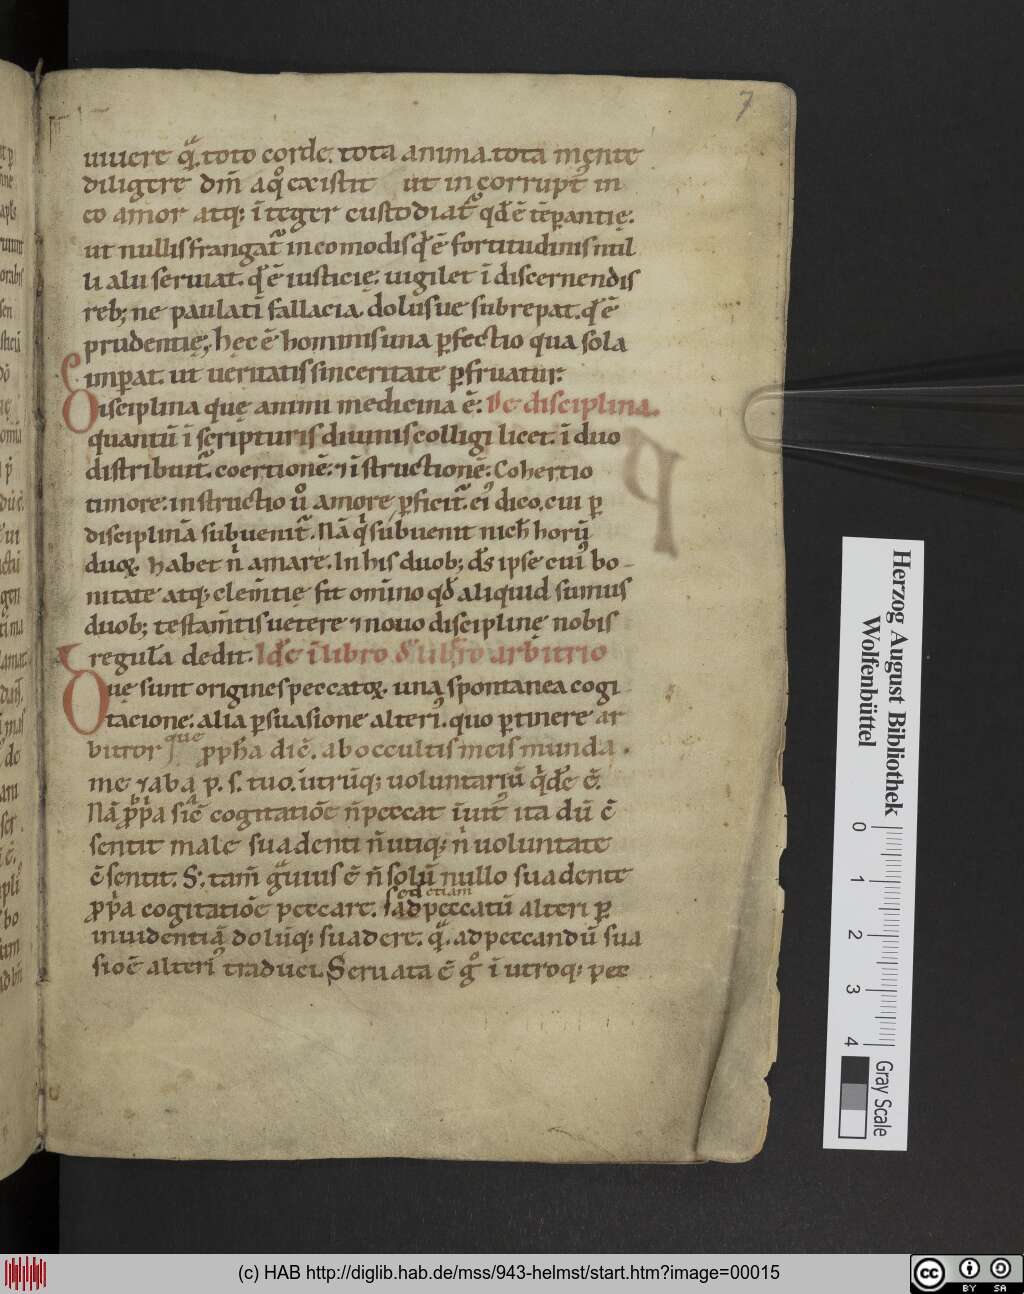 7
uiuere q̄. toto corde. tota anima. tota mente
diligere dm̄ a qͦ existit ut incorrupt᷑ in
eo amor atq; īteger custodiat᷑ qđ ē tēperantię:
ut nullis frangat᷑ incomodis qđ ē fortitudinis nul
li alii seruiat. qđ ē iusticię: uigilet ī discernendis
reb; ne paulatī fallacia. dolusue subrepat. qđ ē
prudentię; hęc ē hominis una ꝑfectio qua sola
impat. ut ueritatis sinceritate ꝑfruatur:
Disciplina quę animi medicina ē: De disciplina.
quantū ī scripturis diuinis colligi licet. ī duo
distribuit᷑. coertionē: ⁊ īstructionē: Cohertio
timore: instructio uͦ amore ꝑficit᷑. eiꝰ dico. cui ꝑ
disciplinā subuenit᷑. Nā qͥ subuenit nich̄ horū
duoꝝ. habet n̄ amare. In his duob; ds̄ ipse cuiꝰ bo-
nitate atq; clem̄tię fit om̄ino qđ aliquid sumus
duob; testam̄tis uetere ⁊ nouo disciplinę nobis
regul̄a dedit. Idē ī libro de lib̄ro arbitrio
Due sunt origines peccatoꝝ. una spontanea cogi
tacione: alia ꝑsuasione alteriꝰ. quo ꝑtinere ar
bitror que ꝓph̄a diē. ab occultis meis munda.
me ⁊ ab a. p. s. tuo. utrūq; uoluntariū qͥdē ē.
Nā ꝓpͥa sic̄ cogitatiōe n̄ peccat īuitꝰ ita dū ē
sentit male suadenti n̄ utiq; n̄ uoluntate
ēsentit. S; tam̄ gͣuius ē n̄ solū nullo suadente
sed etiam
ꝓpͥa cogitatiōe peccare. ad peccatū alteri ꝑ
inuidentiā dolūq; suadere. q̄. ad peccandū sua
sioē alteriꝰ traduci. Seruata ē gͦ ī utroq; pec
Herzog August Bibliothek
Wolfenbüttel
0 1 2 3 4
Gray Scale
(c) HAB http://diglib.hab.de/mss/943-helmst/start.htm?image=00015
cc BY SA